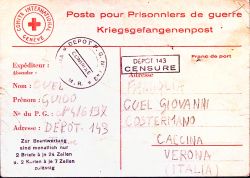 COMITÉ INTERNATIONAL
GENÈVE
Poste pour Prisonniers de guerre
Kriegsgefangenenpost
DEPOT P.G.
CENSURE
DEPOT 143
CENSURE
Franc de port
Expéditeur:
Absender:
Adresse
Nom: GUEL
Prénom: GUIDO
No du P. G.:
Adresse: DEPOT-143
GUEL GIOVANNI
COSTERMANO
CALCINA
VERONA
(ITALIA)
Zur Beantwortung
sind monatlich nur
2 Briefe à je 24 Zeilen
u. 2 Karten à je 7 Zeilen
zulässig